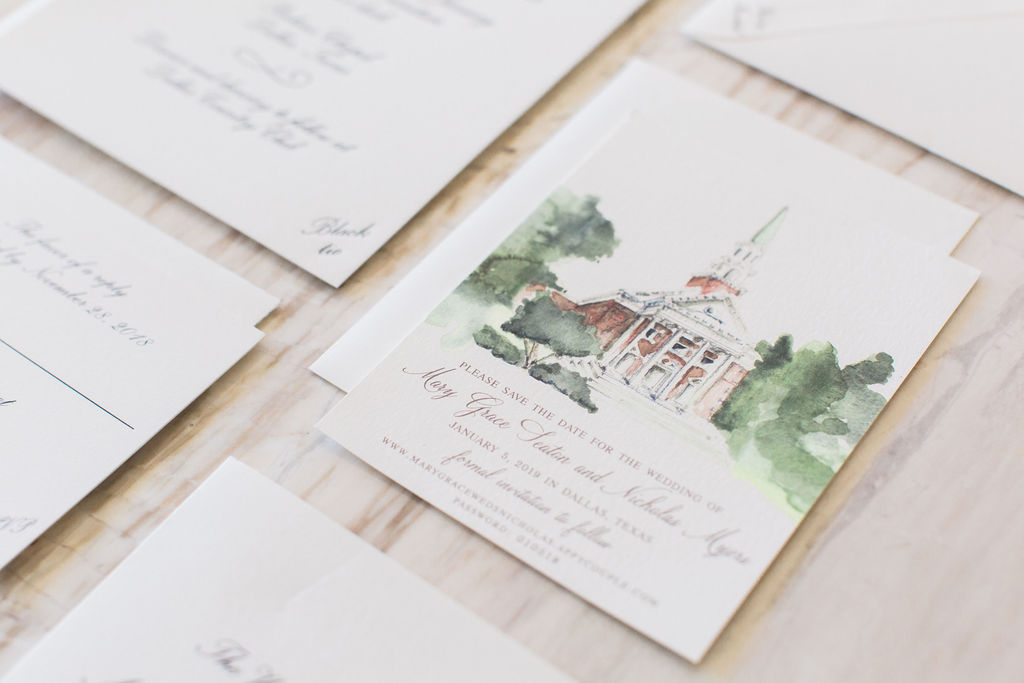 Dallas, Texas
Dinner and dancing to follow at
Dallas Country Club
Black
tie
The favor of a reply
by November 28, 2018
PLEASE SAVE THE DATE FOR THE WEDDING OF
Mary Grace Seaton and Nicholas Myers
JANUARY 5, 2019 IN DALLAS, TEXAS
formal invitation to follow
WWW.MARYGRACEWEDSNICHOLAS.APPYCOUPLE.COM
PASSWORD: 010519
The